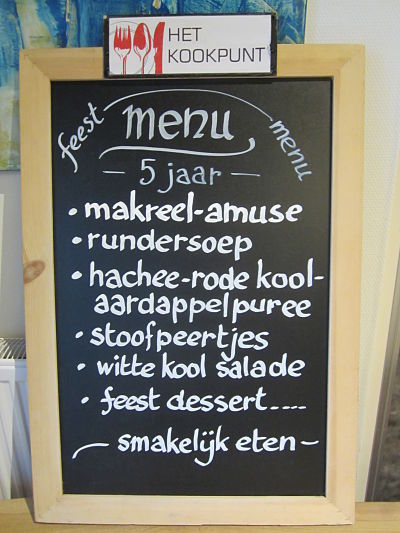 HET
KOOKPUNT
feest menu menu
- 5 jaar -
• makreel-amuse
• rundersoep
• hachee-rode kool-
aardappelpuree
• stoofpeertjes
• witte kool salade
• feest dessert....
- smakelijk eten -